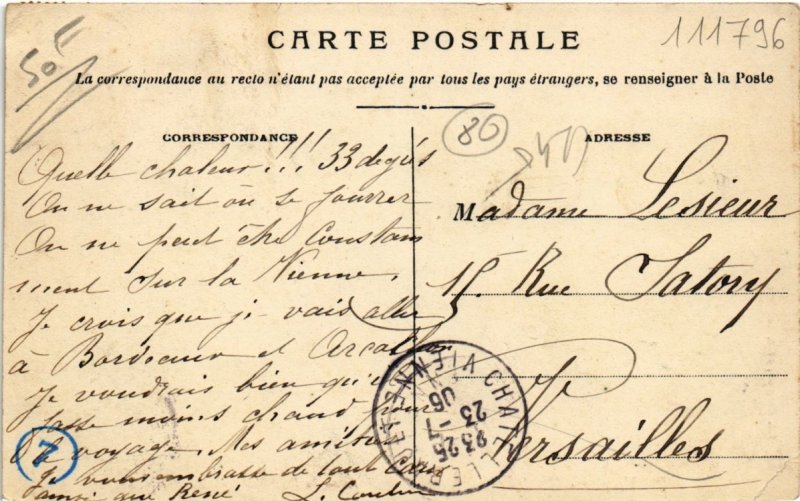 CARTE POSTALE
111796
50F
La correspondance au recto n'étant pas acceptée par tous les pays étrangers, se renseigner à la Poste
CORRESPONDANCE
Quelle chaleur!!! 33 degrés
On ne sait où se fourrer
On ne peut être constam
ment sur la Vienne.
Je crois que je vais aller
à Bordeaux et Arcachon
Je voudrais bien qu'il
fasse moins chaud pour
le voyage. Mes amitiés
Je vous embrasse de tout cœur
ainsi que René
L.
80
ADRESSE
Madame Lesieur
15 Rue Satory
Versailles
CHATELLERAULT VIENNE
23 25
23
06
7